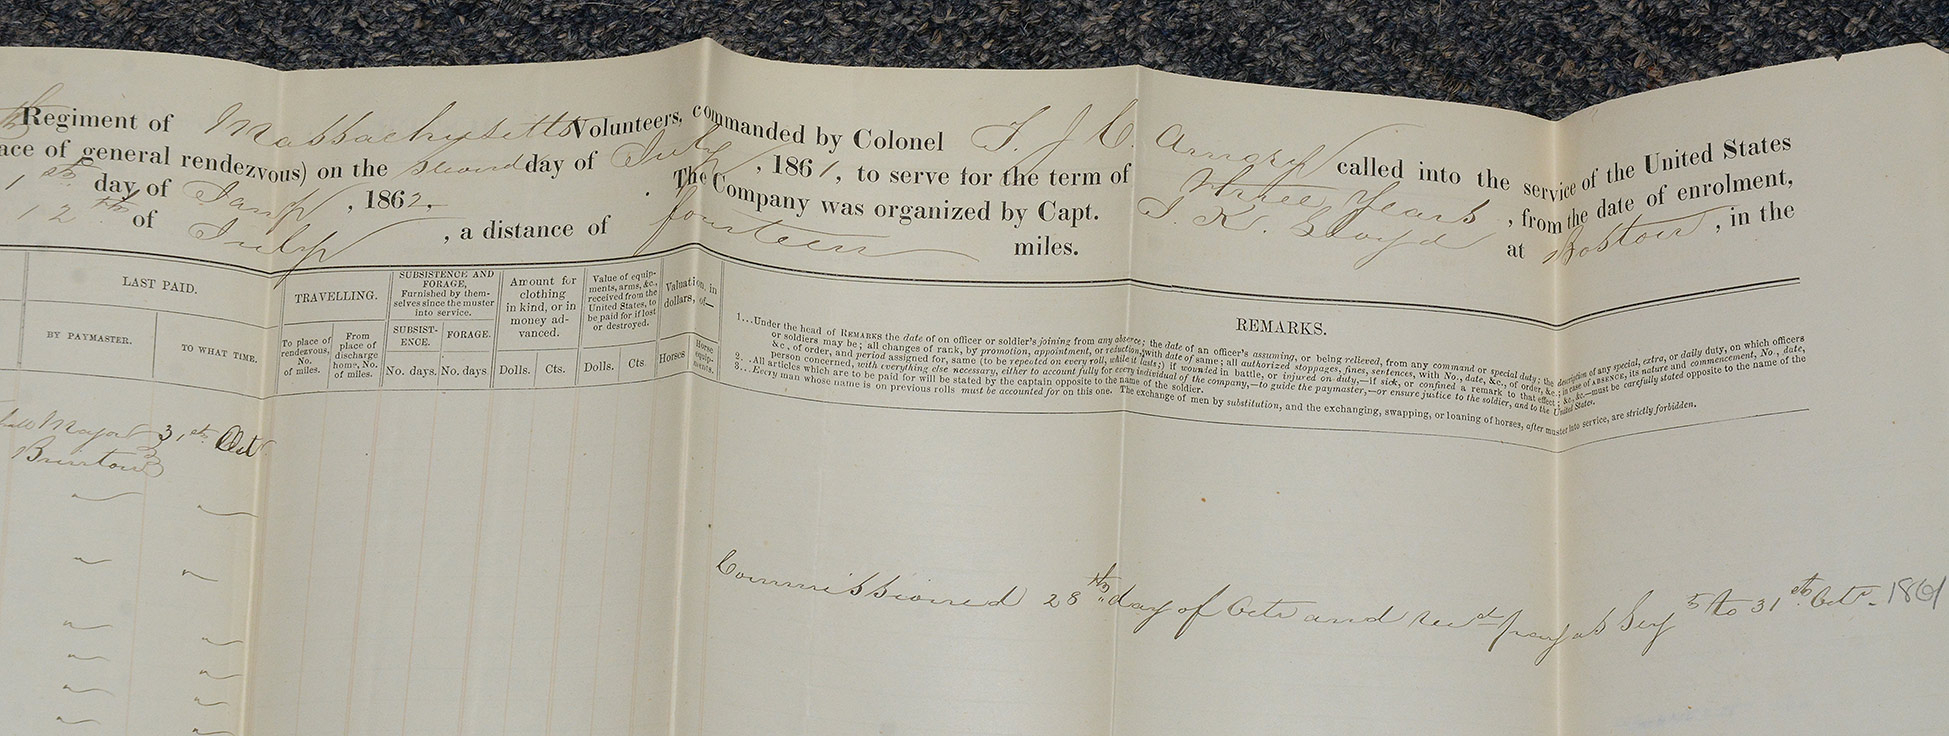 Regiment of Massachusetts Volunteers, commanded by Colonel T. J. C. Amory called into the service of the United States
ace of general rendezvous) on the second day of July , 1861, to serve for the term of Three Years , from the date of enrolment,
1st day of Jany , 1862. The Company was organized by Capt. I. K. Lloyd at Boston , in the
12th of July , a distance of fourteen miles.
LAST PAID.
BY PAYMASTER.
TO WHAT TIME.
TRAVELLING.
To place of rendezvous, No. of miles.
From place of discharge home, No. of miles.
SUBSISTENCE AND FORAGE,
Furnished by themselves since the muster into service.
SUBSISTENCE.
FORAGE.
No. days.
No. days
Amount for clothing in kind, or in money advanced.
Dolls.
Cts.
Value of equipments, arms, &c., received from the United States, to be paid for if lost or destroyed.
Dolls.
Cts.
Valuation, in dollars, of—
Horses
Horse equipments.
REMARKS.
1...Under the head of REMARKS the date of on officer or soldier's joining from any absence; the date of an officer's assuming, or being relieved, from any command or special duty; the description of any special, extra, or daily duty, on which officers
or soldiers may be; all changes of rank, by promotion, appointment, or reduction, with date of same; all authorized stoppages, fines, sentences, with No., date, &c., of order, &c.; in case of ABSENCE, its nature and commencement, No., date,
&c., of order, and period assigned for, same (to be repeated on every roll, while it lasts;) if wounded in battle, or injured on duty,—if sick, or confined a remark to that effect; &c., &c.—must be carefully stated opposite to the name of the
person concerned, with everything else necessary, either to account fully for every individual of the company,—to guide the paymaster,—or ensure justice to the soldier, and to the United States.
2...All articles which are to be paid for will be stated by the captain opposite to the name of the soldier.
3...Every man whose name is on previous rolls must be accounted for on this one. The exchange of men by substitution, and the exchanging, swapping, or loaning of horses, after muster into service, are strictly forbidden.
Major 31st Oct
Commissioned 28th day of Octr and recd pay as Serg 5 to 31st Octr. 1861